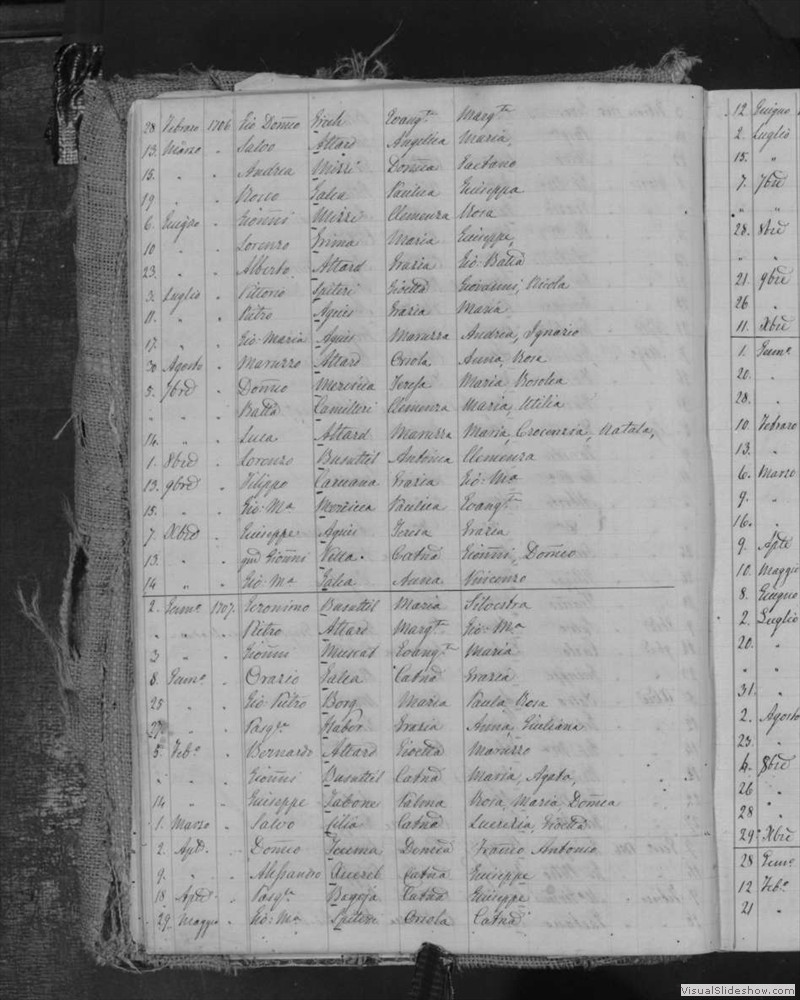 28 Febraro 1706 Gio Domco Grech Evangta Margta
13. Marzo " Salvo Attard Angelica Maria,
15. " " Andrea Mizzi Domca Gaetano
19 " " Rocco Galea Paulica Giuseppa
6. Giugno " Gionni Mizzi Clemenza Rosa
10 " " Lorenzo Grima Maria Giuseppe,
23. " " Alberto Attard Grazia Gio: Batta
3. Luglio " Vittorio Spiteri Gioetta Giovanni, Nicola
11. " " Pietro Agius Grazia Maria
17. " " Gio: Maria Agius Maruzza Andrea, Ignazio
30 Agosto " Maruzzo Attard Oriola Anna, Rosa
5. 7bre " Domco Mercieca Teresa Maria Rosolea
" " " Batta Camilleri Clemenza Maria, Utilia
14. " " Luca Attard Maruzza Maria, Crocenzia, Natala,
1. 8bre " Lorenzo Busuttil Antonia Clemenza
13. 9bre " Filippo Caruana Grazia Gio: Ma
15. " " Gio: Ma Mercieca Paulica Evangta
7. Xbre " Giuseppe Agius Teresa Grazia
13. " " qm Gionni Vella. Catna Gionni, Domco
14 " " Gio: Ma Galea Anna Vincenzo
2. Genno 1707. Geronimo Busuttil Maria Silvestra
" " " Pietro Attard Margta Gio: Ma
3 " " Gionni Muscat Evangta Maria
8. Genno " Orazio Galea Catna Grazia
25 " " Gio: Pietro Borg Maria Paula, Rosa
27 " " Pasqle Haber Grazia Anna, Giuliana
5. Febo " Bernardo Attard Gioetta Maruzzo
" " " Gionni Busuttil Catna Maria, Agata,
14 " " Giuseppe Tabone Palma Rosa, Maria, Domca
1. Marzo " Salvo Cilia Catna Lucrezia, Gioetta
2. Aple " Domco Tucma Domca Franco Antonio
9. " " Alessandro Xuereb Catna Giuseppe
18. Aple " Pasqle Bugeja Catna Giuseppe
29. Maggio " Gio: Ma Spiteri Oriola Catna
12 Giugno
2. Luglio
15. "
7. 7bre
" "
28. 8bre
" "
21. 9bre
26 "
11. Xbre
1. Genno
20. "
28. "
10. Febraro
13. "
6. Marzo
9. "
16. "
9. Aple
10. Maggio
8. Giugno
2. Luglio
20. "
" "
31. "
2. Agosto
23. "
4. 8bre
26 "
28 "
29 Xbre
28 Genno
12 Febo
21 "
VisualSlideshow.com